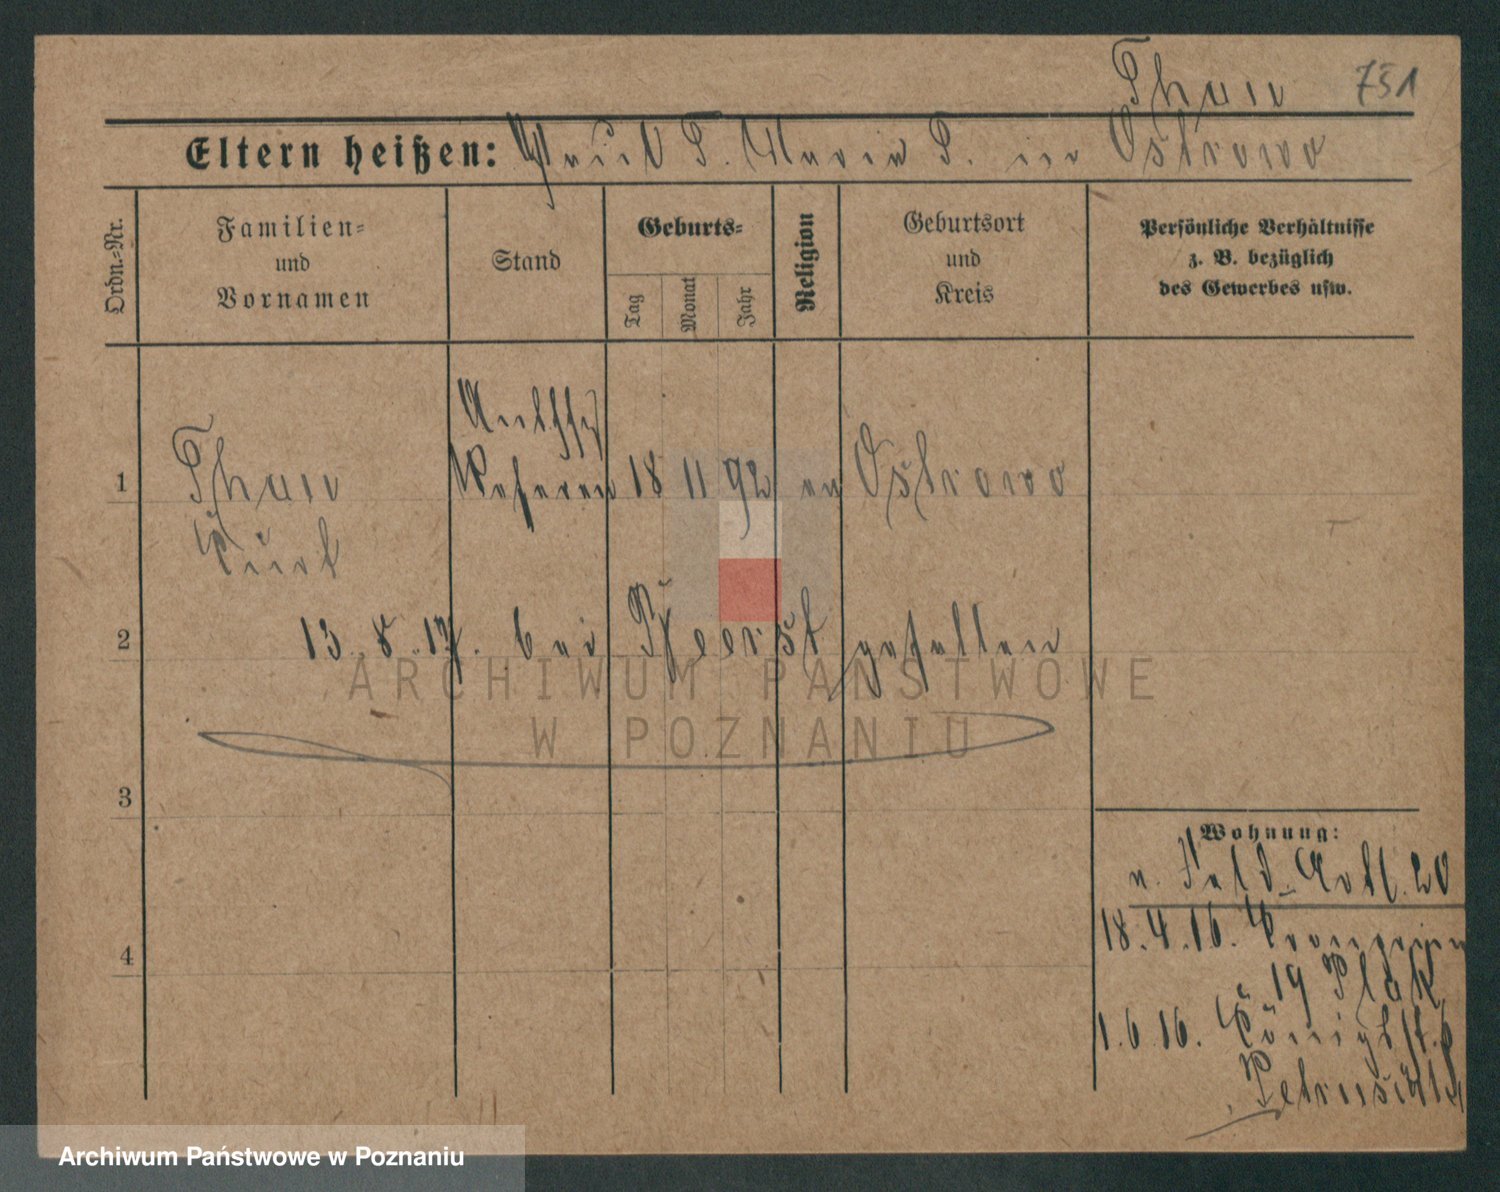 Thau 751
Eltern heißen: Paul T. Maria T. in Ostrowo
Ordn.-Nr.
Familien-
und
Vornamen
Stand
Geburts-
Tag
Monat
Jahr
Religion
Geburtsort
und
Kreis
Persönliche Verhältnisse
z. B. bezüglich
des Gewerbes usw.
1 Thau Referen 18 11 92 ev Ostrowo
Kurt
2 13. 8. 17. bei gefallen
ARCHIWUM PAŃSTWOWE
W POZNANIU
3
Wohnung:
n. Feld-Artl. 20
18. 4. 16.
4
19
1. 6. 16.
Archiwum Państwowe w Poznaniu